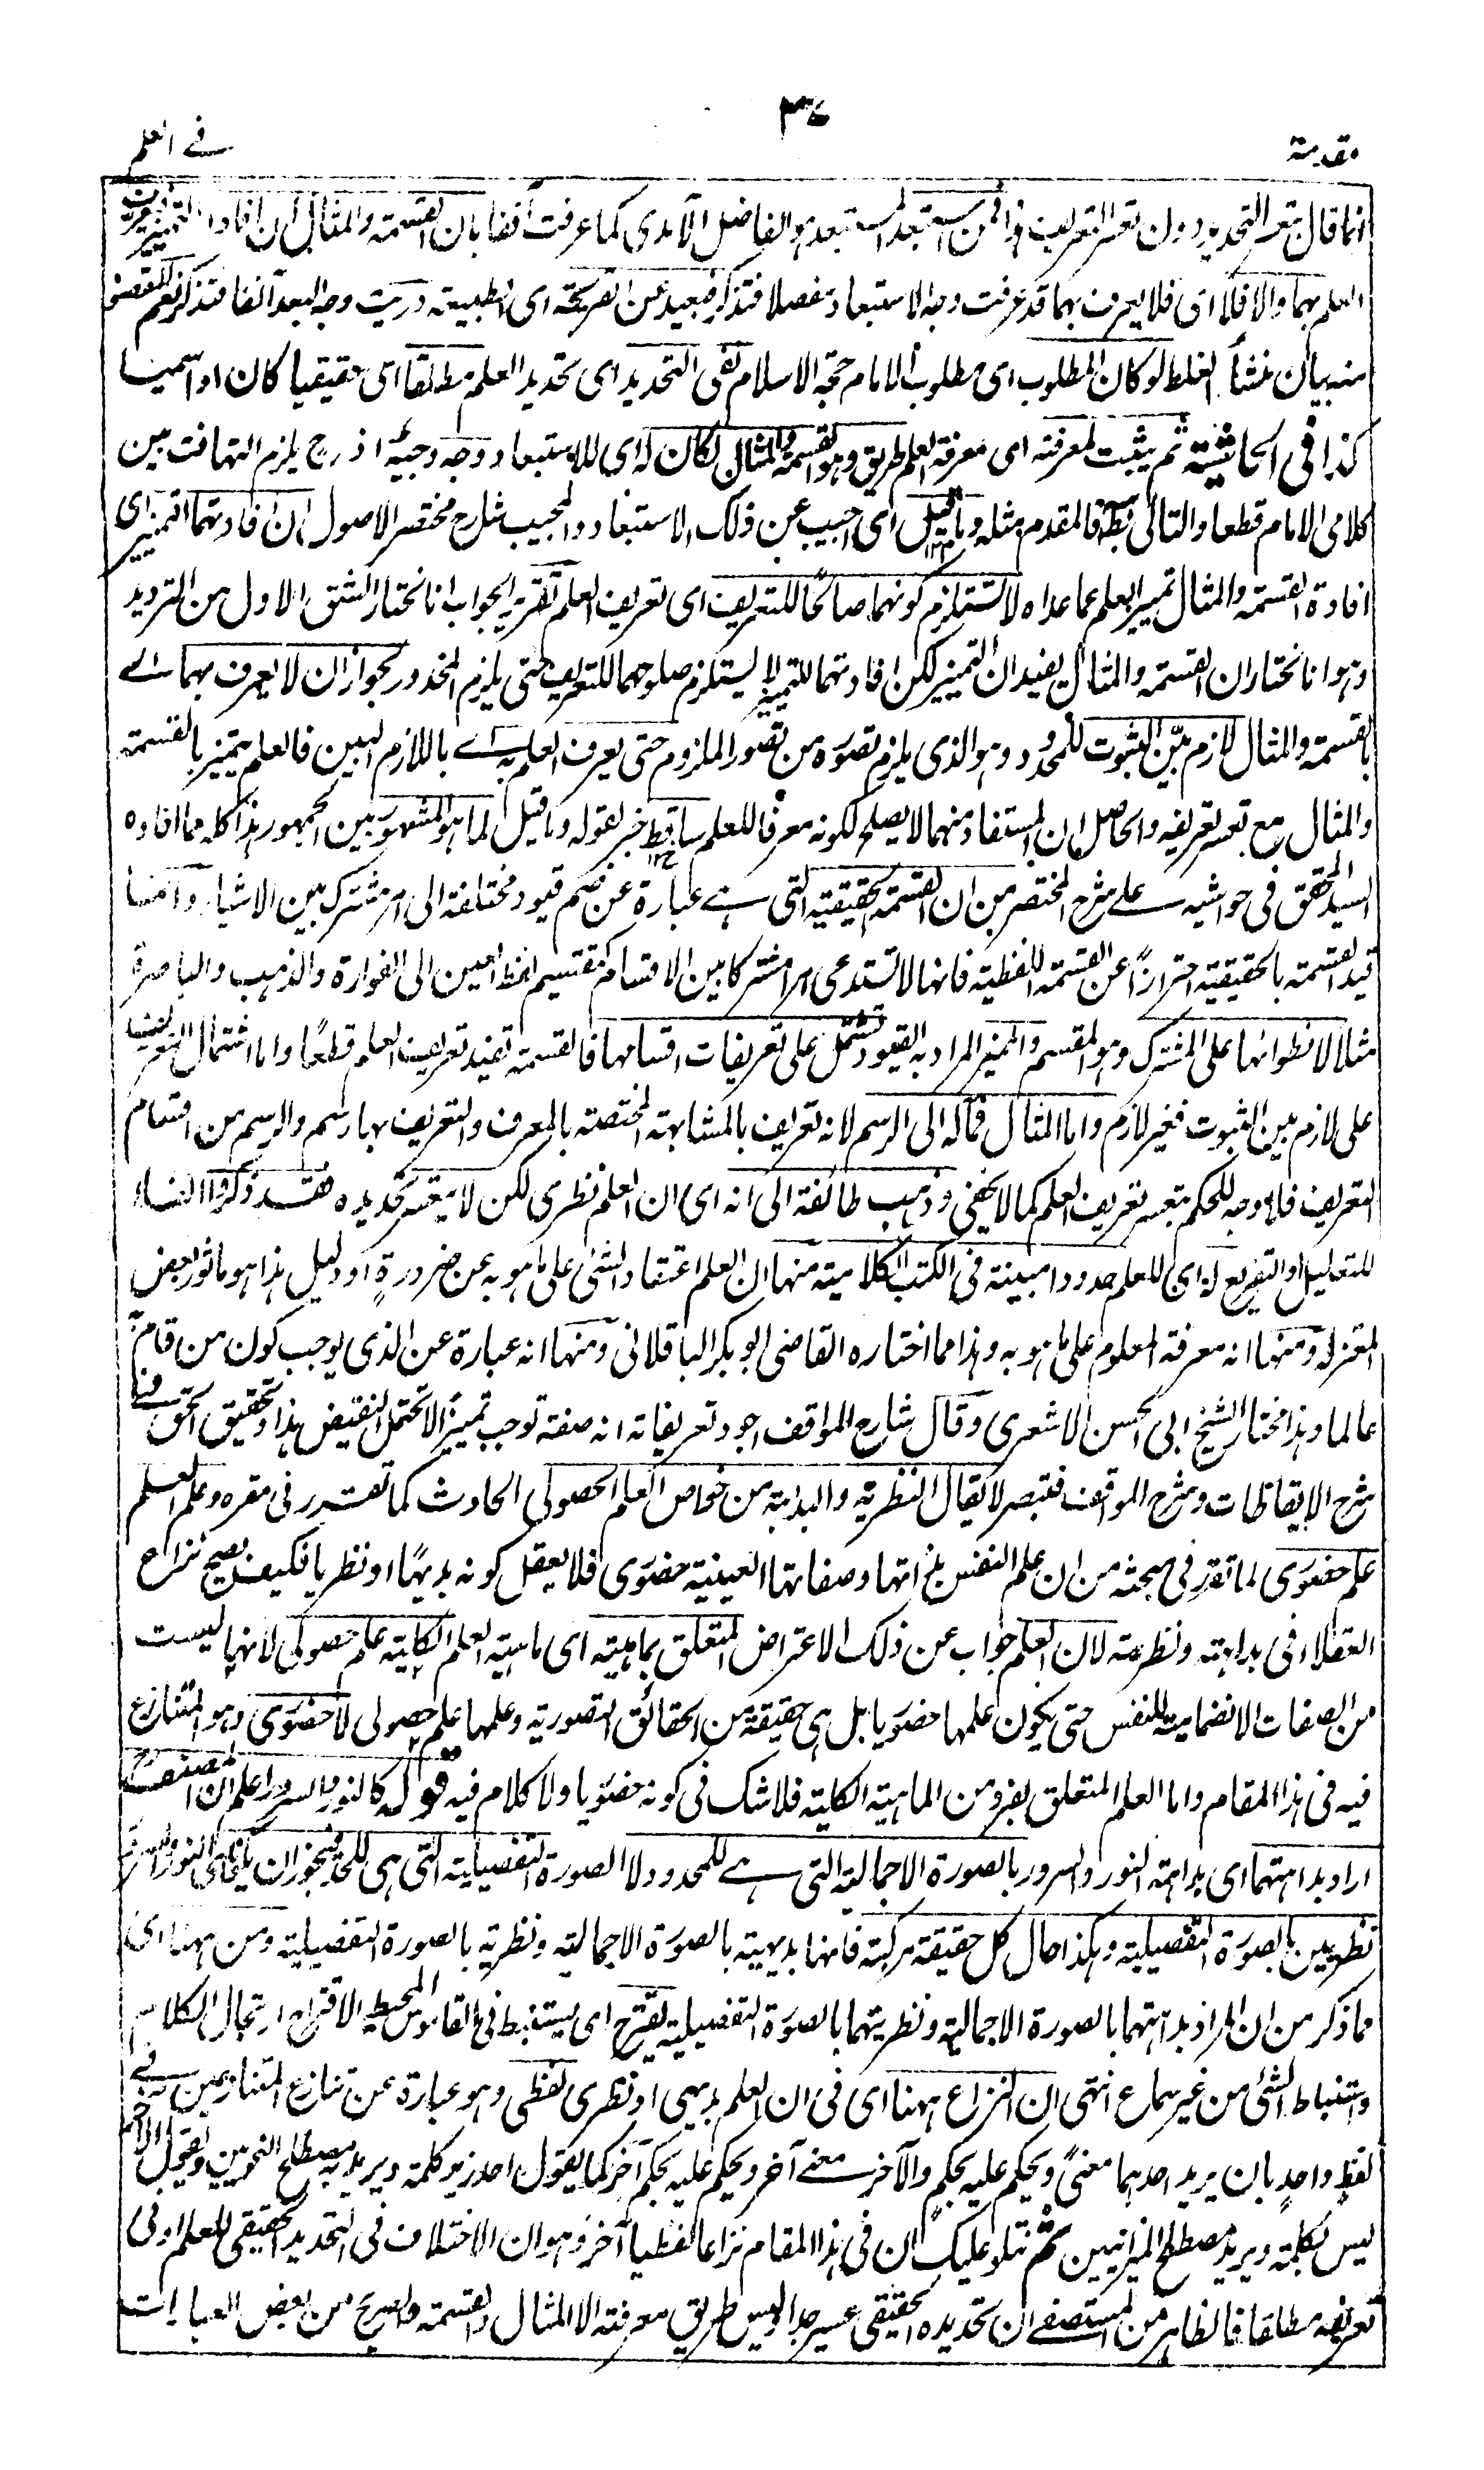 ٣٤
مقدمة
في العلم
انما قال بتعسر التحديد دون تعسر التعريف فافهم من استبعد المستبعد هو الفاضل الآمدي كما عرفت آنفا بان القسمة والمثال ان افادا التمييز
العلم بهما والا فلا اى فلا يعرف بهما قد عرفت وجه الاستبعاد مفصلا فتذكر فبعيد عن القريحة اى الطبيعة دريت وجه البعد آنفا فتذكر نعم المقصود
منه بيان منشأ الغلط لو كان المطلوب اى مطلوب الامام حجة الاسلام نفى التحديد اى تحديد العلم مطلقا اى حقيقيا كان او اسميا
كذا فى الحاشية ثم يثبت لمعرفته اى معرفة العلم طريق وهو القسمة والمثال لكان له اى للاستبعاد وجه وجيه اذ ح يلزم التهافت بين
كلامى الامام قطعا والتالى بط فالمقدم مثله وما قيل اى اجيب عن ذلك الاستبعاد والمجيب شارح مختصر الاصول ان افادتهما التمييز اى
افادة القسمة والمثال تمييز العلم عما عداه لا تستلزم كونهما صالحًا للتعريف اى تعريف العلم تقرير الجواب انا نختار الشق الاول من الترديد
وهو انا نختار ان القسمة والمثال يفيدان التمييز لكن افادتهما للتمييز لا يستلزم صلوحهما للتعريف حتى يلزم المحذور لجواز ان لا يعرف بهما اے
بالقسمة والمثال لازم بيّن الثبوت للمحدود وهو الذى يلزم تصوره من تصور الملزوم حتى يعرف العلم به اے باللازم البين فالعلم يتميز بالقسمة
والمثال مع تعسر تعريفه والحاصل ان المستفاد منهما لا يصلح لكونه معرفا للعلم ساقط خبر لقوله وما قيل لما هو المشهور بين الجمهور هذا كله مما افاده
السيد المحقق فى حواشيه على شرح المختصر من ان القسمة الحقيقية التى هے عبارة عن ضم قيود مختلفة الى امر مشترك بين الاشياء وانما
قيد القسمة بالحقيقية احترازًا عن القسمة اللفظية فانها لا تستدعى امرا مشتركا بين الاقسام كتقسيم لفظ العين الى الفوارة والذهب والباصرة
مثلا لانطوائها على المشترك وهو المقسم والمميز المراد به القيود تشتمل على تعريفات اقسامها فالقسمة تفيد تعريف العلم قطعًا واما اشتمال التعريف
على لازم بين الثبوت فغير لازم واما المثال فمآله الى الرسم لانه تعريف بالمشابهة المختصة بالمعرف والتعريف بها رسم والرسم من اقسام
التعريف فلا وجه للحكم بتعسر تعريف العلم كما لا يخفى وذهب طائفة الى انه اى ان العلم نظرى لكن لا يتعسر تحديده فقد ذكروا الفاء
للتعليل او التفريع له اى للعلم حدودا مبينة فى الكتب الكلامية منها ان العلم اعتقاد الشئ على ما هو به عن ضرورةٍ او دليل هذا هو ماثور بعض
المعتزلة ومنها انه معرفة المعلوم على ما هو به وهذا مما اختاره القاضى ابو بكر الباقلانى ومنها انه عبارة عن الذى يوجب كون من قام به
عالما وهذا مختار الشيخ ابى الحسن الاشعرى وقال شارح المواقف اجود تعريفاته انه صفة توجب تمييزًا لا تحتمل النقيض هذا وتحقيق الحق فى
شرح الايقاظات وشرح المواقف فتبصر لا يقال النظرية والبداهة من خواص العلم الحصولى الحادث كما تقرر فى مقره وعلم العلم
علم حضورى لما تقرر فى مبحثه من ان علم النفس بذاتها وصفاتها العينية حضورى فلا يعقل كونه بديهيًا او نظريا فكيف يصح نزاع
العقلاء فى بداهته ونظريته لان العلم جواب عن ذلك الاعتراض المتعلق بماهيته اى ماهية العلم الكلية علم حصولى لانها ليست
من الصفات الانضمامية للنفس حتى يكون علمها حضوريا بل هى حقيقة من الحقائق التصورية وعلمها علم حصولى لا حضورى وهو المتنازع
فيه فى هذا المقام واما العلم المتعلق بفرد من الماهية الكلية فلا شك فى كونه حضوريا ولا كلام فيه قوله كالنور والسرور اعلم ان المصنف رح
اراد بداهتهما اى بداهة النور والسرور بالصورة الاجمالية التى هے للمحدود لا الصورة التفصيلية التى هى للحد فيجوز ان يكونا اى النور والسرور
نظريين بالصورة التفصيلية وهكذا حال كل حقيقة مركبة فانها بديهية بالصورة الاجمالية ونظرية بالصورة التفصيلية ومن ههنا اى
مما ذكر من ان المراد بداهتهما بالصورة الاجمالية ونظريتهما بالصورة التفصيلية يقترح اى يستنبط فى القاموس المحيط الاقتراح ارتجال الكلام
واستنباط الشئ من غير سماع انتهى ان النزاع ههنا اى فى ان العلم بديهى او نظرى لفظى وهو عبارة عن تنازع المتنازعين فى
لفظ واحدٍ بان يريد احدهما معنىً ويحكم عليه بحكم والآخر معنے آخر ويحكم عليه بحكم آخر كما يقول احد زيد كلمة ويريد به مصطلح النحويين ويقول الآخر
ليس بكلمة ويريد مصطلح الميزانيين ثم نتلو عليك ان فى هذا المقام نزاعا لفظيا آخر وهو ان الاختلاف فى التحديد الحقيقى للعلم او فى
تعريفه مطلقا فالظاهر من المستصفے ان تحديده الحقيقى عسير جدا وليس طريق معرفته الا المثال والقسمة والصريح من بعض العبارات